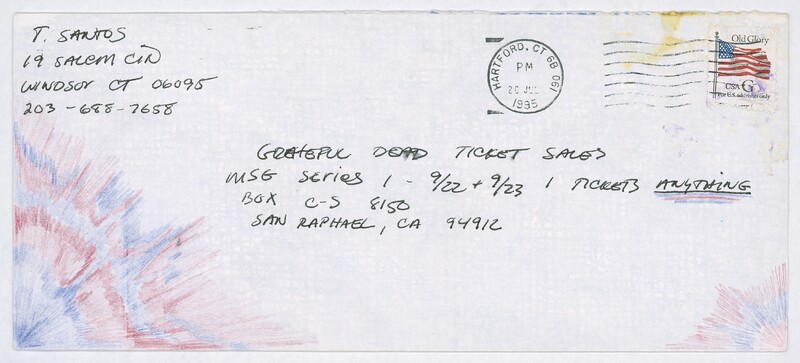 T. SANTOS
19 SALEM CIR
WINDSOR CT 06095
203-688-7658
HARTFORD, CT GB 061
PM
20 JUL
1995
Old Glory
USA G
For U.S. addresses only
GRATEFUL DEAD TICKET SALES
MSG SERIES 1 - 9/22 + 9/23 1 TICKETS ANYTHING
BOX C-S 8150
SAN RAPHAEL, CA 94912